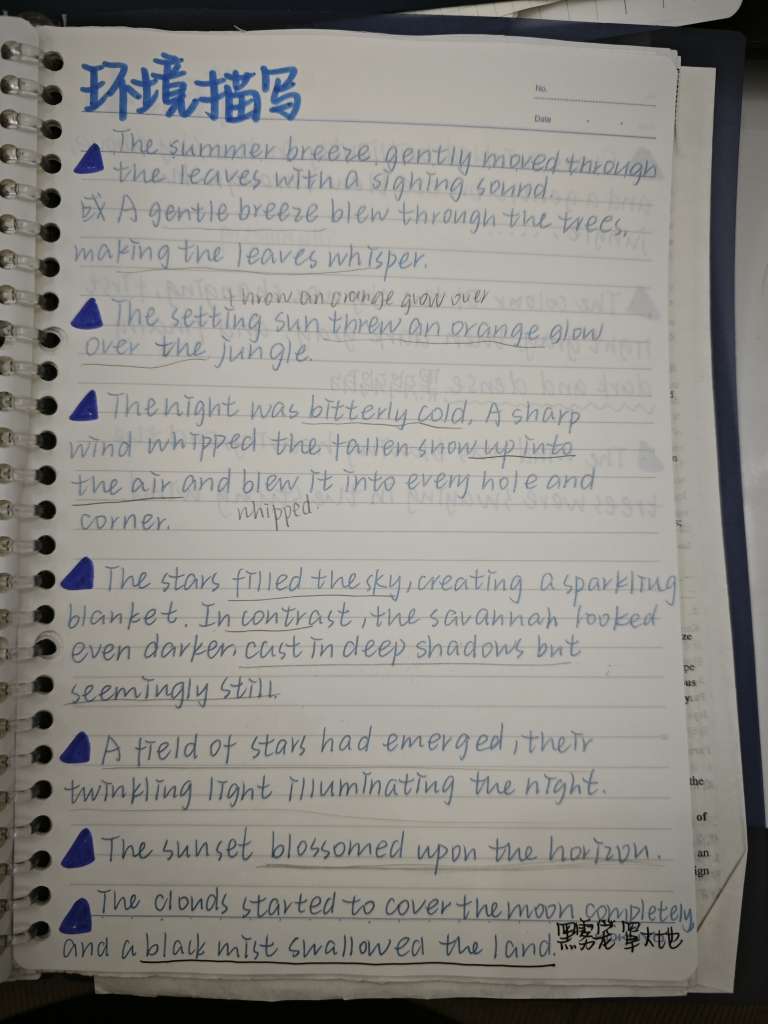 环境描写
No.
Date
The summer breeze gently moved through
the leaves with a sighing sound.
或 A gentle breeze blew through the trees,
making the leaves whisper.
throw an orange glow over
The setting sun threw an orange glow
over the jungle.
The night was bitterly cold. A sharp
wind whipped the fallen snow up into
the air and blew it into every hole and
corner.
whipped.
The stars filled the sky, creating a sparkling
blanket. In contrast, the savannah looked
even darker, cast in deep shadows but
seemingly still.
A field of stars had emerged, their
twinkling light illuminating the night.
The sunset blossomed upon the horizon.
The clouds started to cover the moon completely
and a black mist swallowed the land. 黑雾笼罩大地
the
of
an
ign